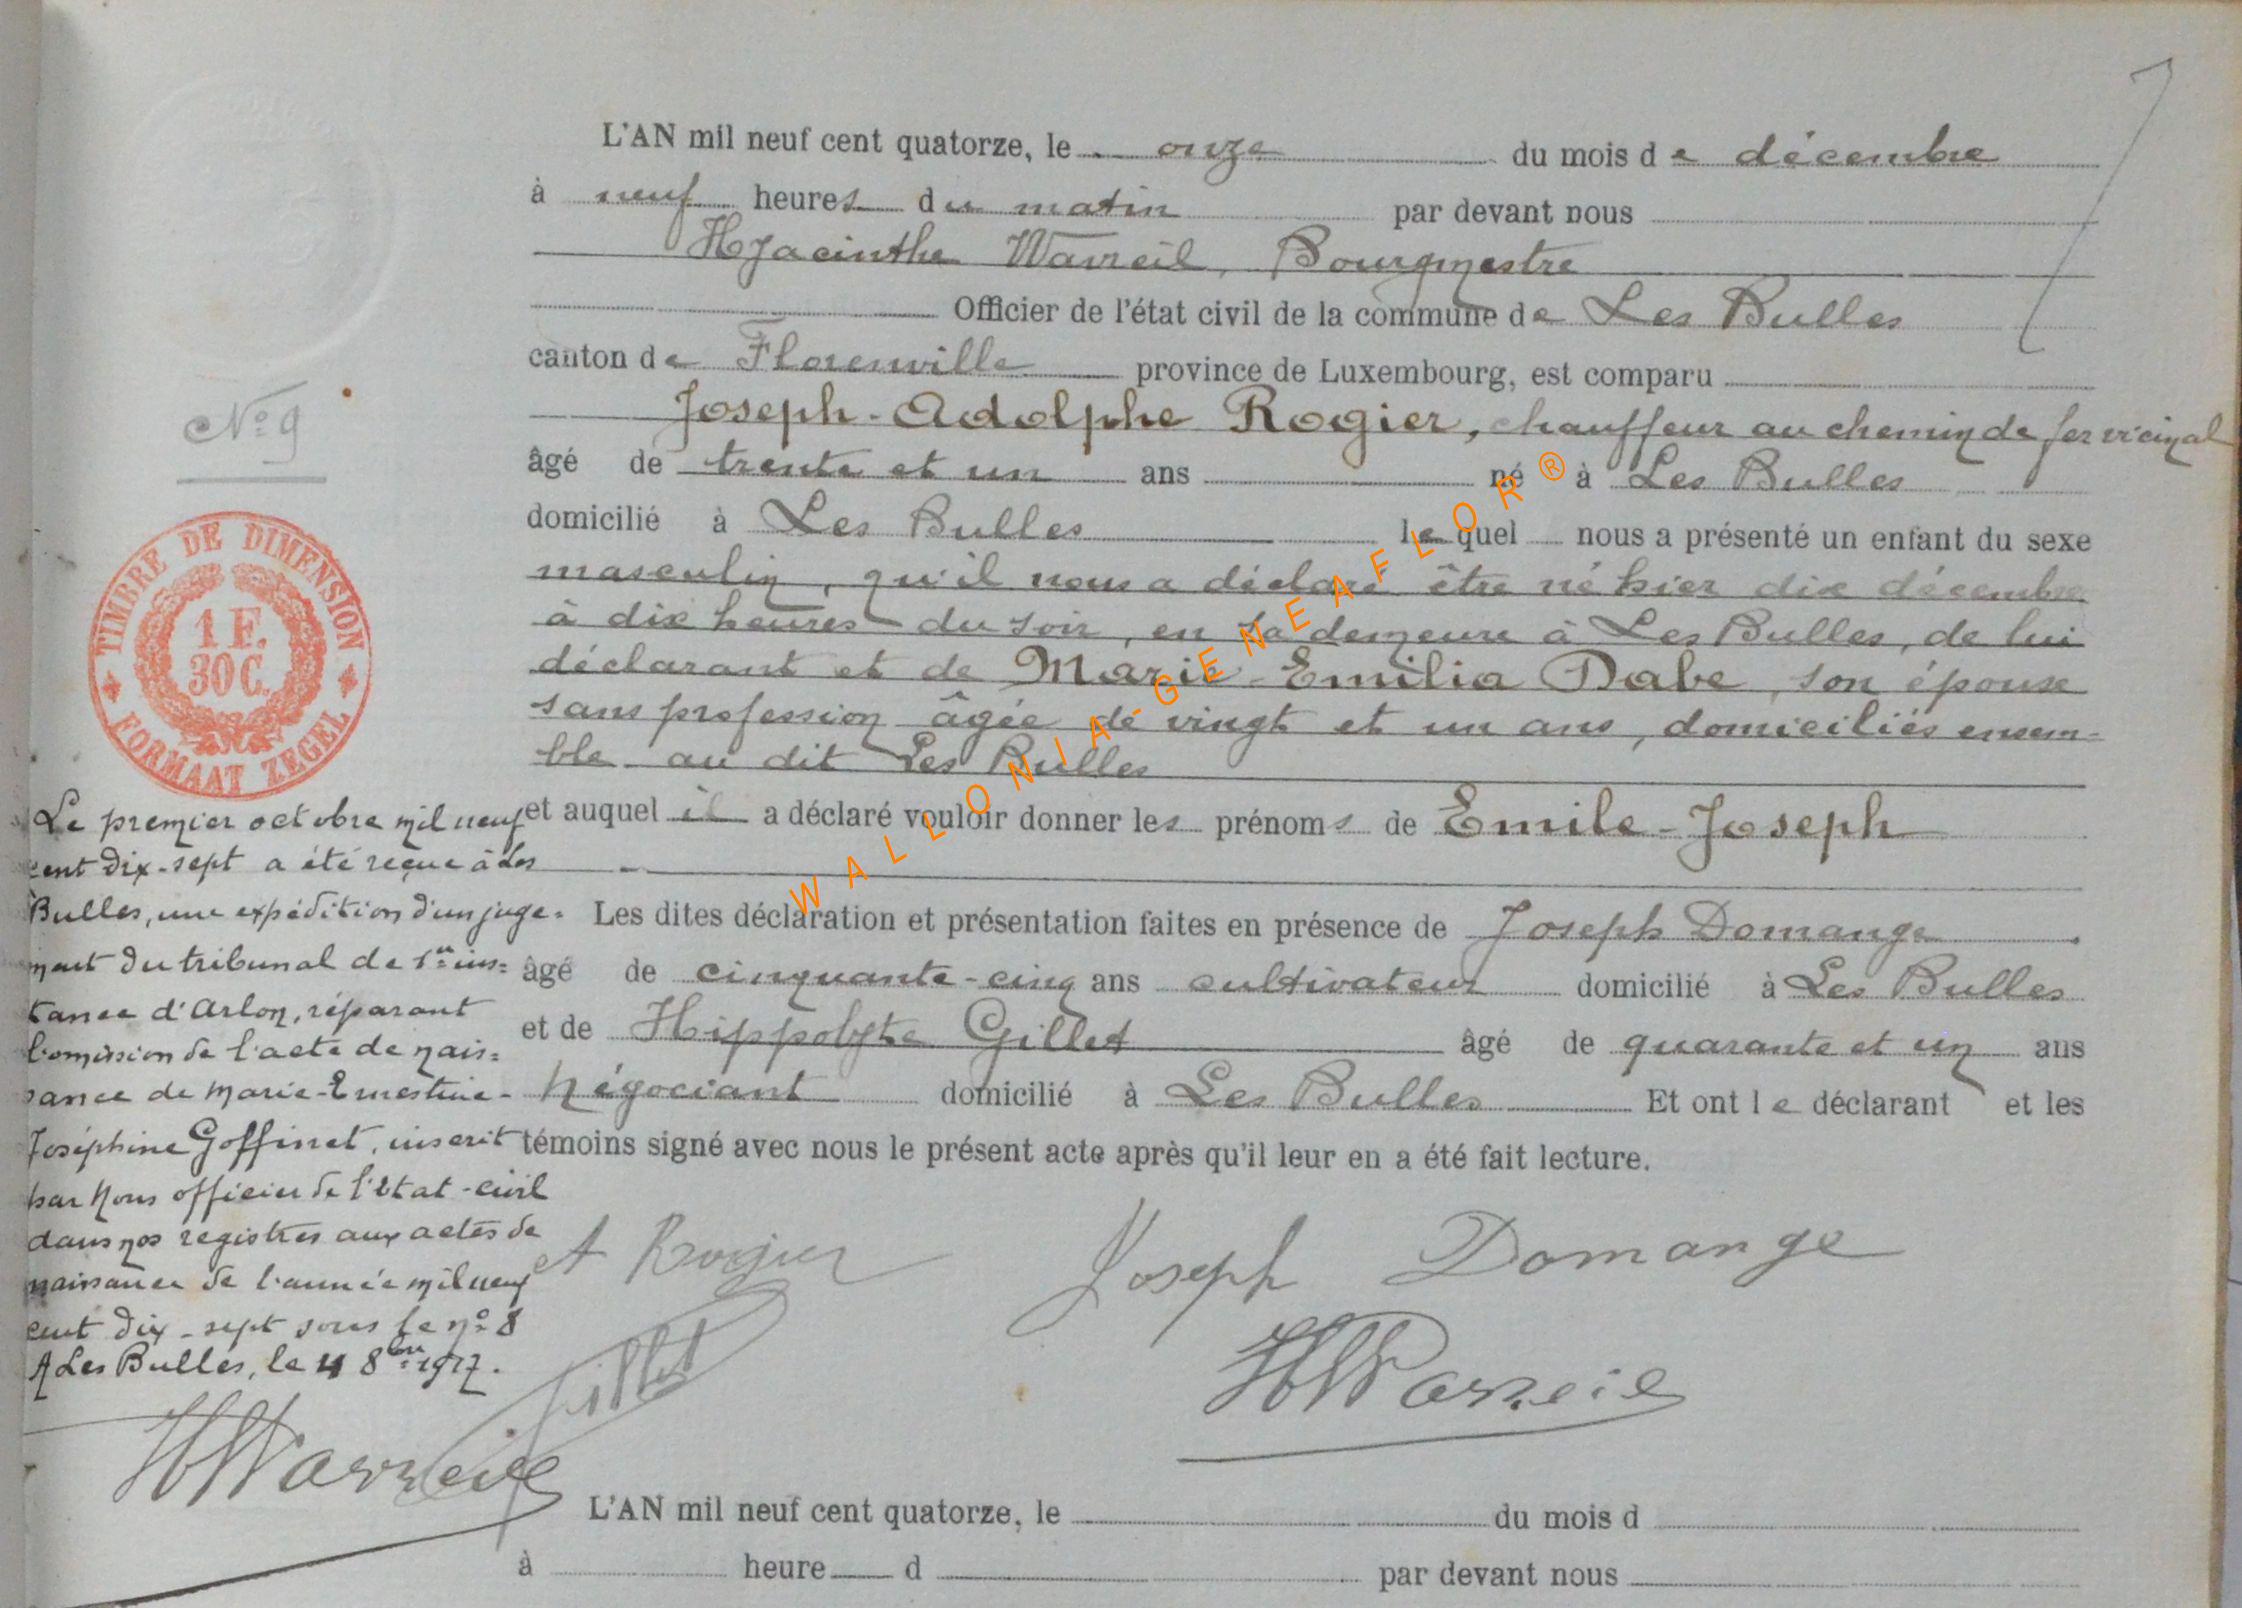 L'AN mil neuf cent quatorze, le onze du mois de décembre
à neuf heures du matin par devant nous
Hyacinthe Warreil, Bourgmestre
Officier de l'état civil de la commune de Les Bulles
canton de Florenville province de Luxembourg, est comparu
Joseph-Adolphe Rogier, chauffeur au chemin de fer vicinal
âgé de trente et un ans né à Les Bulles
domicilié à Les Bulles lequel nous a présenté un enfant du sexe
masculin, qu'il nous a déclaré être né hier dix décembre
à dix heures du soir, en sa demeure à Les Bulles, de lui
déclarant et de Marie-Emilia Dabe, son épouse
sans profession âgée de vingt et un ans, domiciliés ensem-
ble au dit Les Bulles
et auquel il a déclaré vouloir donner les prénoms de Emile-Joseph
Les dites déclaration et présentation faites en présence de Joseph Domange
âgé de cinquante-cinq ans cultivateur domicilié à Les Bulles
et de Hippolyte Gillet âgé de quarante et un ans
négociant domicilié à Les Bulles Et ont le déclarant et les
témoins signé avec nous le présent acte après qu'il leur en a été fait lecture.
A Rogier
Joseph Domange
Gillet
HWarreil
N° 9
TIMBRE DE DIMENSION
1 F.
30 C.
FORMAAT ZEGEL
Le premier octobre mil neuf
cent dix-sept a été reçue à Les
Bulles, une expédition d'un juge=
ment du tribunal de 1re ins=
tance d'Arlon, réparant
l'omission de l'acte de nais=
sance de Marie-Ernestine-
Joséphine Goffinet, inscrit
par Nous officier de l'état-civil
dans nos registres aux actes de
naissance de l'année mil neuf
cent dix-sept sous le n° 8
A Les Bulles, le 4 8bre 1917.
HWarreil
L'AN mil neuf cent quatorze, le du mois d
à heure d par devant nous
WALLONIA-GENEAFLOR®